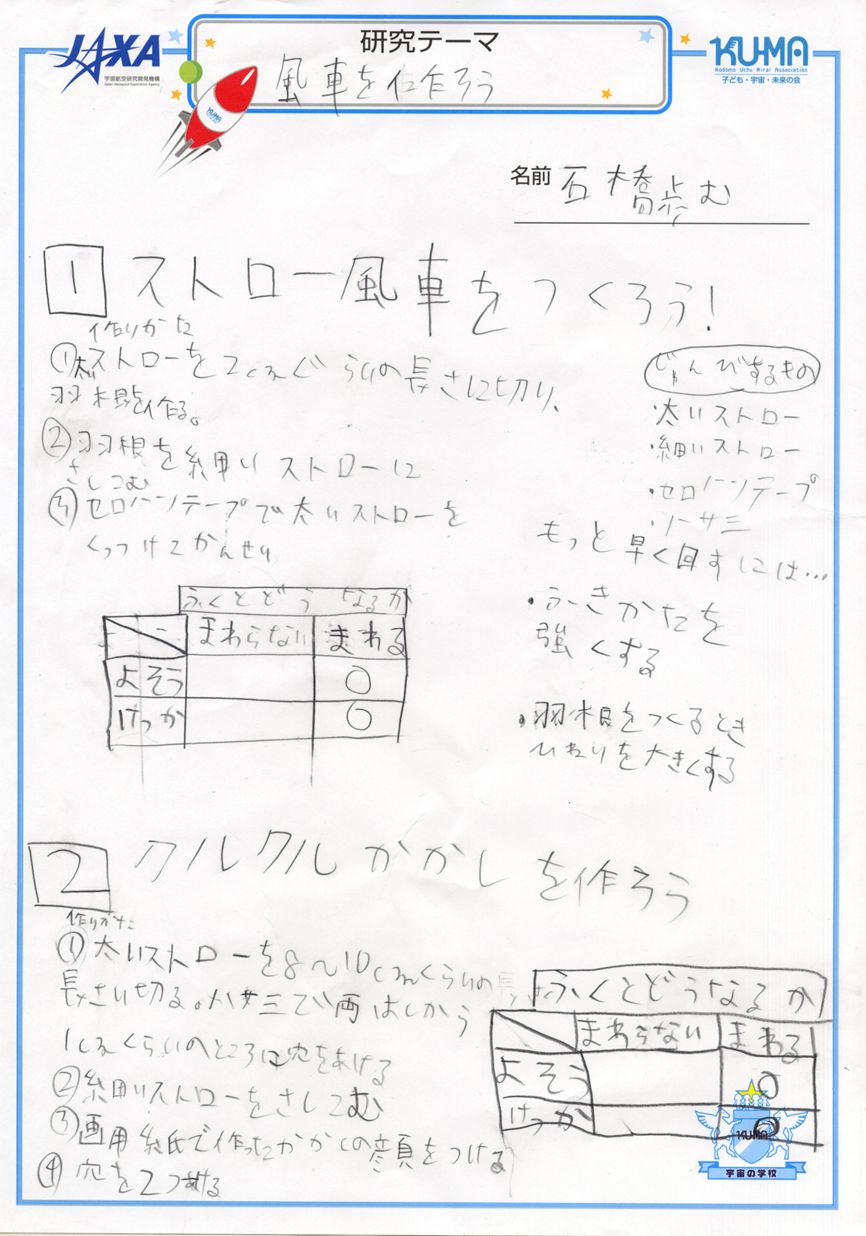 JAXA
宇宙航空研究開発機構
Japan Aerospace Exploration Agency
研究テーマ
風車を作ろう
KU-MA
Kodomo Uchu Mirai Association
子ども・宇宙・未来の会
KU-MA
名前 石橋歩む
1 ストロー風車をつくろう!
作りかた
①太いストローを2cmぐらいの長さに切り、
羽根を作る。
②羽根を細いストローに
さしこむ
③セロハンテープで太いストローを
くっつけてかんせい
じゅんびするもの
・太いストロー
・細いストロー
・セロハンテープ
・ハサミ
もっと早く回すには…
・ふきかたを
強くする
・羽根をつくるとき
ひねりを大きくする
ふくとどうなるか
まわらない まわる
よそう ○
けっか ○
2 クルクルかかしを作ろう
作りかた
①太いストローを8〜10cmくらいの
長さい切る。ハサミで両はしから
1cmくらいのところに穴をあける
②細いストローをさしてむ
③画用紙で作ったかかしの顔をつける
④穴を2つあける
ふくとどうなるか
まわらない まわる
よそう ○
けっか ○
KU-MA
宇宙の学校